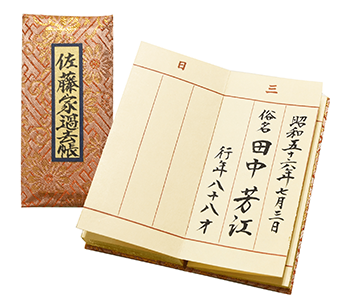 佐藤家過去帳
三日
昭和五十六年七月三日
俗名 田中芳江
行年八十八才